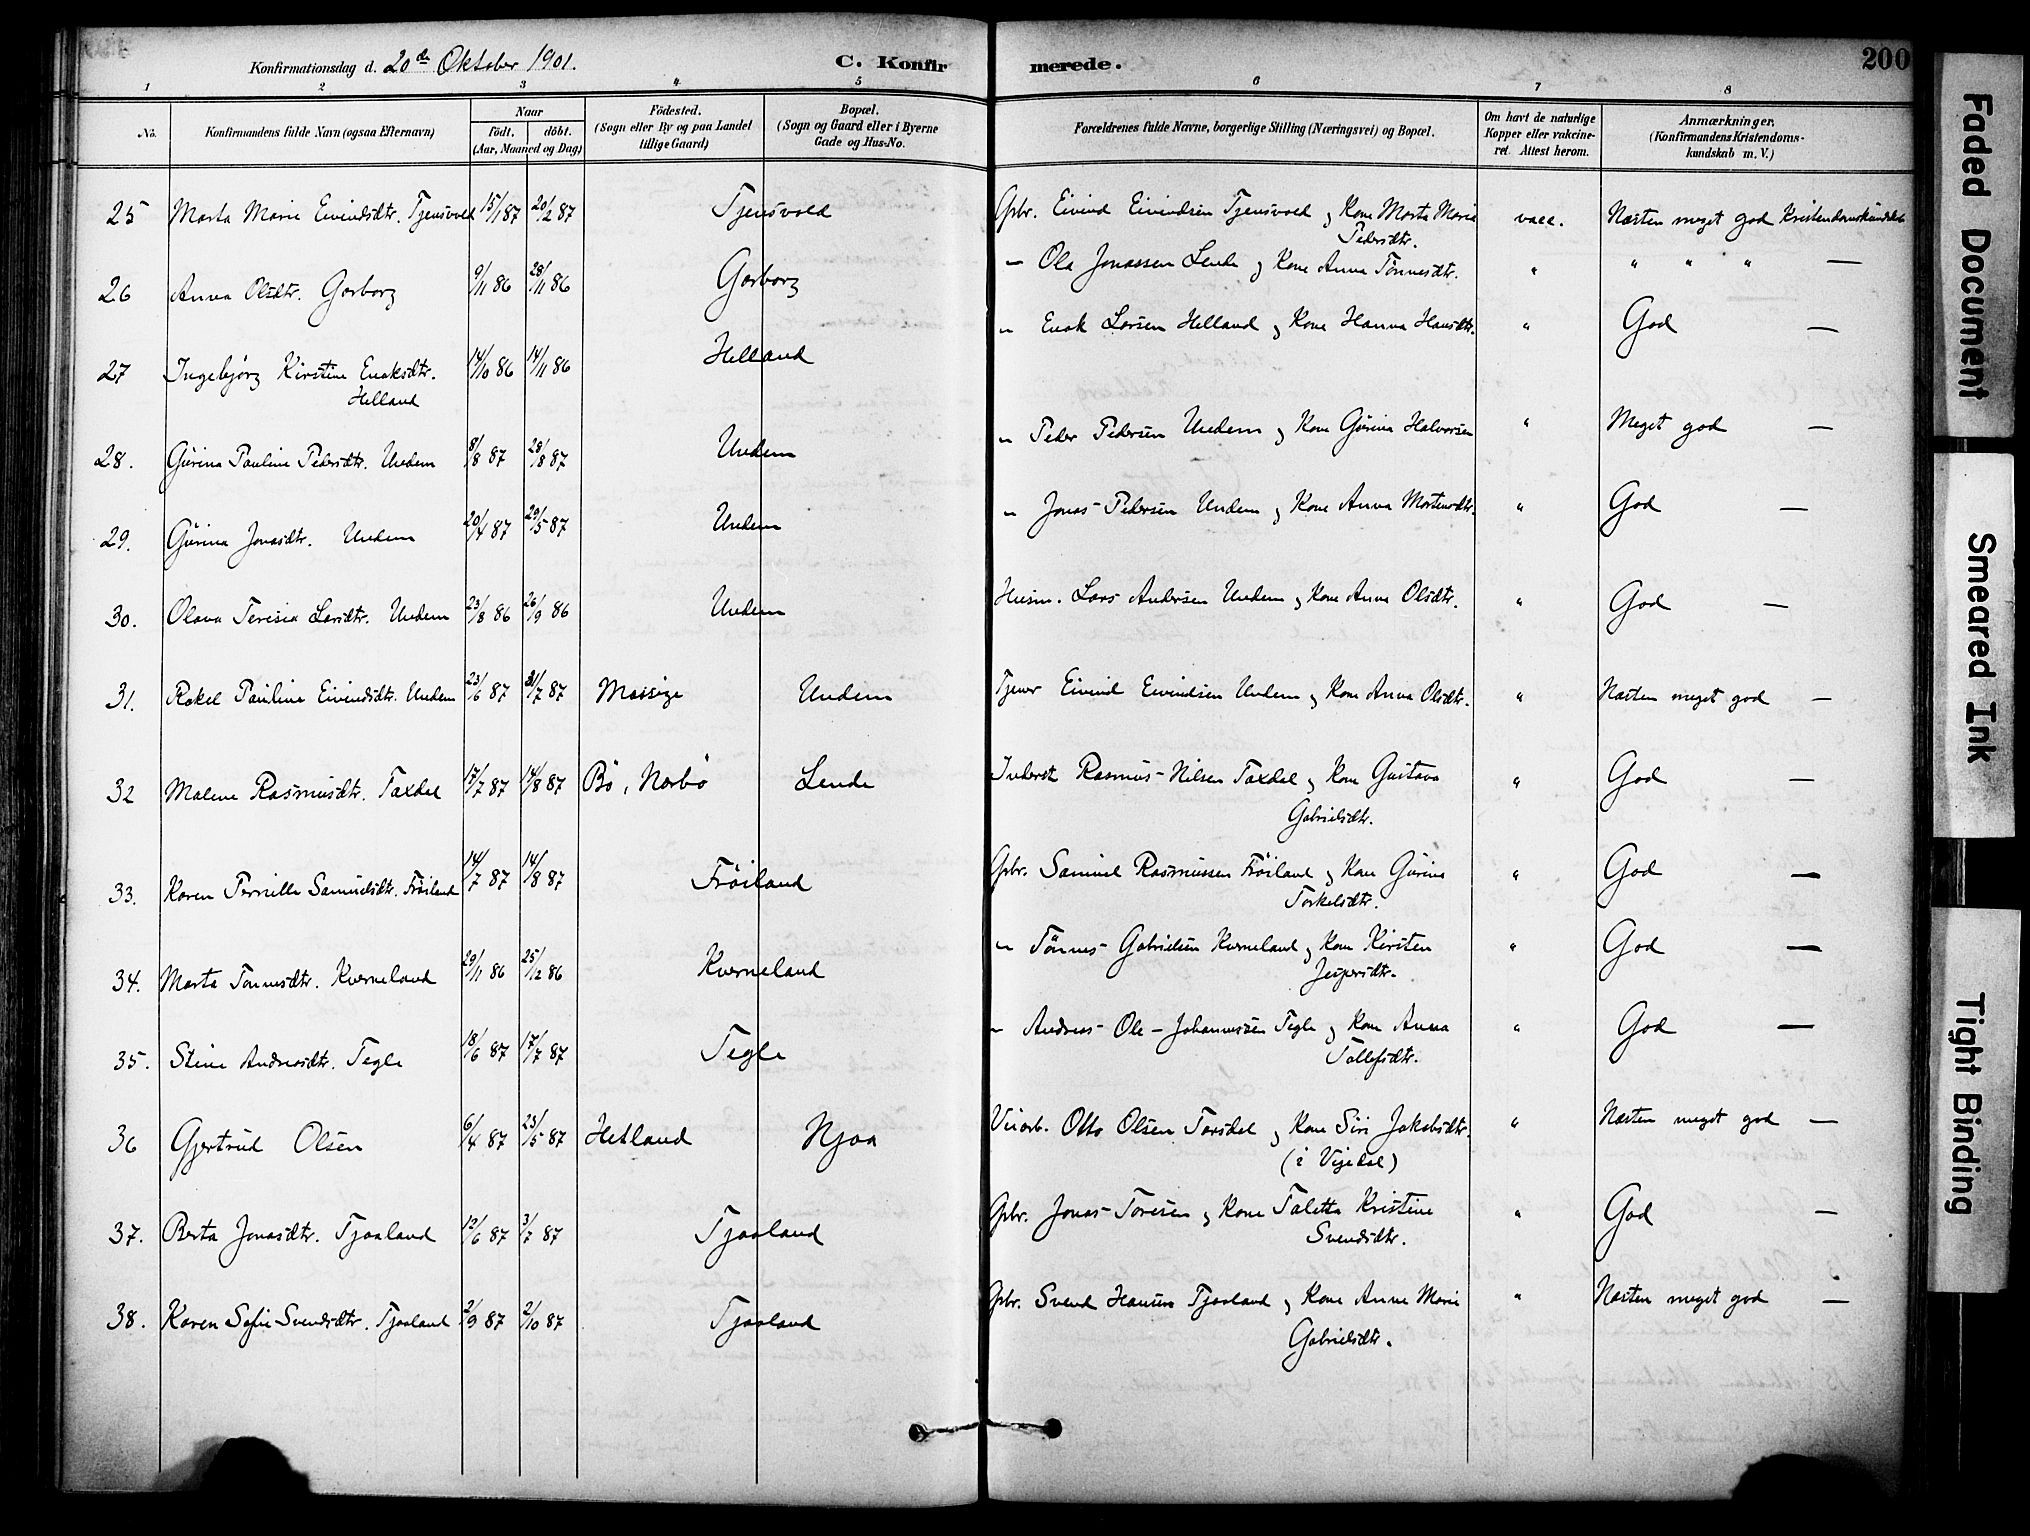 Konfirmationsdag d. 20de Oktober 1901. C. Konfirmerede. 200
1 2 3 4 5 6 7 8
No. Konfirmandens fulde Navn (ogsaa Efternavn) Naar født. døbt. (Aar, Maaned og Dag) Fødested. (Sogn eller By og paa Landet tillige Gaard) Bopæl. (Sogn og Gaard eller i Byerne Gade og Hus-No. Forældrenes fulde Navne, borgerlige Stilling (Næringsvei) og Bopæl. Om havt de naturlige Kopper eller vakcineret. Attest herom. Anmærkninger, (Konfirmandens Kristendomskundskab m. V.)
25 Marta Marie Eivindsdtr. Tjensvold 15/1 87 20/2 87 Tjensvold Gbr. Eivind Eivindsen Tjensvold og Kone Marta Maria vacc. Næsten meget god Kristendomskundskab
Pedersdtr.
26 Anna Olsdtr. Garborg 9/11 86 28/11 86 Garborg " Ola Jonassen Lende og Kone Anna Tønnesdtr. " " " " —
27 Ingebjørg Kirstine Enoksdtr. 14/10 86 14/11 86 Helland " Enok Larsen Helland og Kone Hanna Hansdtr. " God —
Helland
28. Gurina Pauline Pedersdtr. Undem 8/8 87 28/8 87 Undem " Peder Pedersen Undem og Kone Gurina Halvorsen " Meget god —
29. Gurina Jonasdtr. Undem 20/4 87 29/5 87 Undem " Jonas Pedersen Undem og Kone Anna Mortensdtr. " God —
30. Olava Teresia Larsdtr. Undem 23/8 86 26/9 86 Undem Husm. Lars Andersen Undem og Kone Anna Olsdtr. " God —
31. Rakel Pauline Eivindsdtr. Undem 23/6 87 31/7 87 Mossige Undem Tjener Eivind Eivindsen Undem og Kone Anna Olsdtr. " Næsten meget god —
32 Malene Rasmusdtr. Taxdal 17/7 87 14/8 87 Bø, Nærbø Lende Inderst Rasmus Nilsen Taxdal og Kone Gustava " God —
Gabrielsdtr.
33. Karen Pernille Samuelsdtr. Frøiland 14/7 87 14/8 87 Frøiland Gbr. Samuel Rasmussen Frøiland og Kone Gurina " God —
Torkelsdtr.
34. Marta Tønnesdtr. Kverneland 29/11 86 25/12 86 Kverneland " Tønnes Gabrielsen Kverneland og Kone Kirsten " God —
Jespersdtr.
35. Stine Andreasdtr. Tegle 18/6 87 17/7 87 Tegle " Andreas Ole Johannessen Tegle og Kone Anna " God —
Tollefsdtr.
36 Gjertrud Olsen 6/4 87 23/5 87 Hetland Njaa Veiarb. Otto Olsen Tarsdal og Kone Siri Jakobsdtr. " Næsten meget god —
(i Vigedal)
37. Berta Jonasdtr. Tjaaland 12/6 87 3/7 87 Tjaaland Gbr. Jonas Toresen og Kone Taletta Kristine " God —
Svendsdtr.
38. Karen Sofie Svendsdtr. Tjaaland 2/9 87 2/10 87 Tjaaland Gbr. Svend Hansen Tjaaland og Kone Anne Marie " Næsten meget god —
Gabrielsdtr.
Faded Document
Smeared Ink
Tight Binding